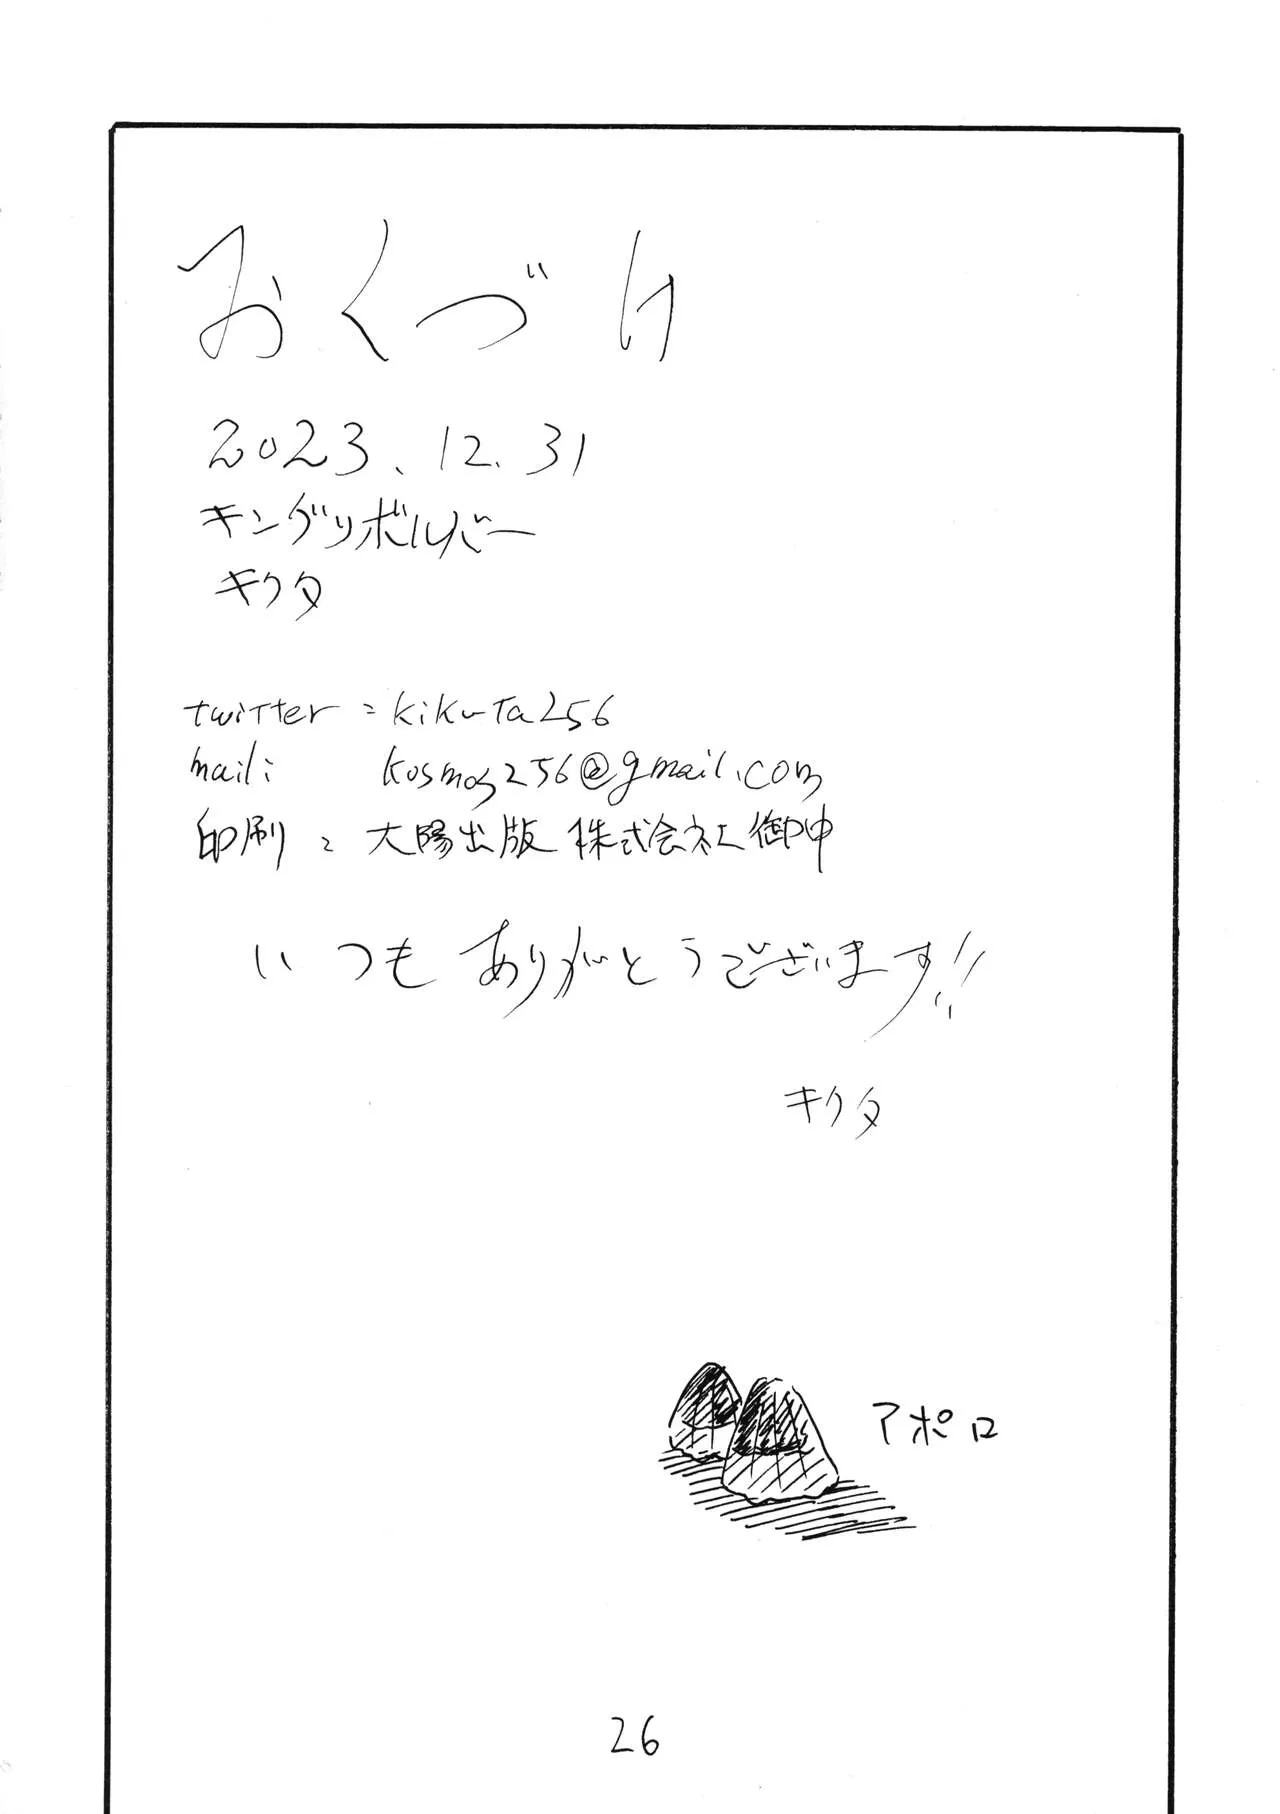 おくづけ
2023.12.31
キングリボルバー
キクタ
twitter : kikuta256
mail: kosmos256@gmail.com
印刷 : 大陽出版 株式会社 御中
いつも ありがとうございます!!
キクタ
アポロ
26